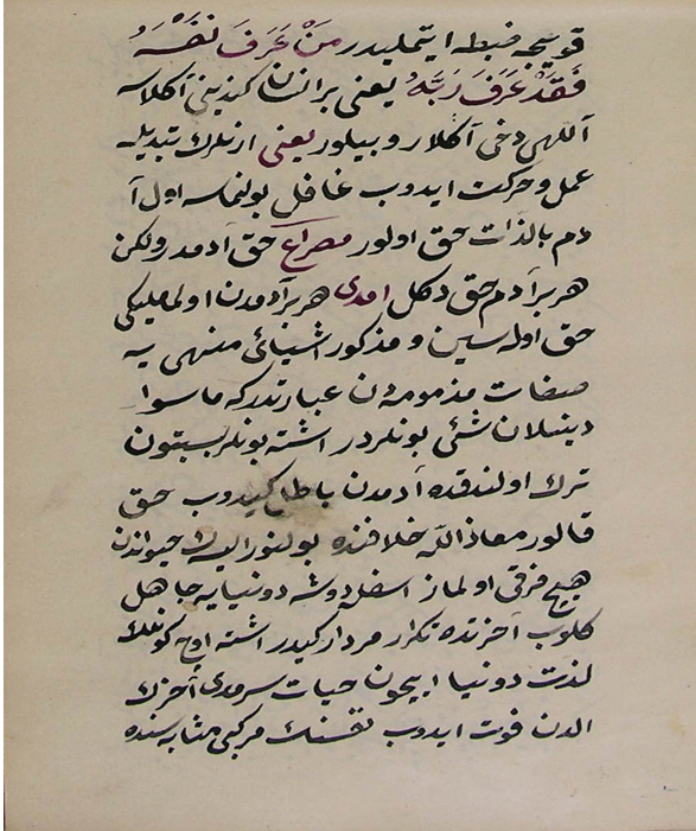 قویجه ضبطه ایتملیدر مَنْ عَرَفَ نَفْسَهُ
فَقَدْ عَرَفَ رَبَّهُ یعنی بر انسان کندینی آکلاسه
آللهی دخی آکلار و بیلور یعنی ارنلرك تبدیله
عمل و حرکت ایدوب غافل بولنماسه اول آ
دم بالذات حق اولور مصراع حق آدمدر ولکن
هر بر آدم حق دکل امدی هر بر آدمدن اولمایکی
حق اوله سین و مذکور اشیائ منهی یه
صفات مذمومه دن عبارتدر که ماسوا
دینیلان شئی بونلردر اشته بونلر بسبتون
ترك اولندقده آدمدن باطل کیدوب حق
قالور معاذ الله خلافنده بولنور ایسه حیواندن
هیچ فرقی اولماز اسفله دوشه دونیایه جاهل
کلوب آخرتده تکرار مردار کیدر اشته اوچ کونلك
لذت دونیا ایچون حیات سرمدی آخرك
الدن فوت ایدوب نفسنك مرکبی مثابه سنده